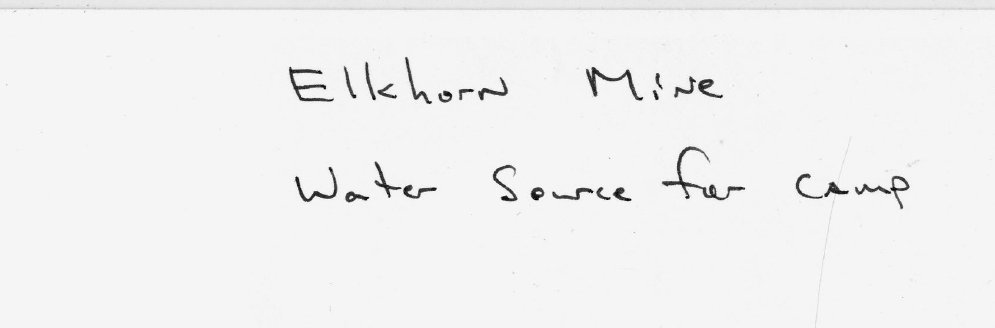 Elkhorn Mine
Water Source for camp